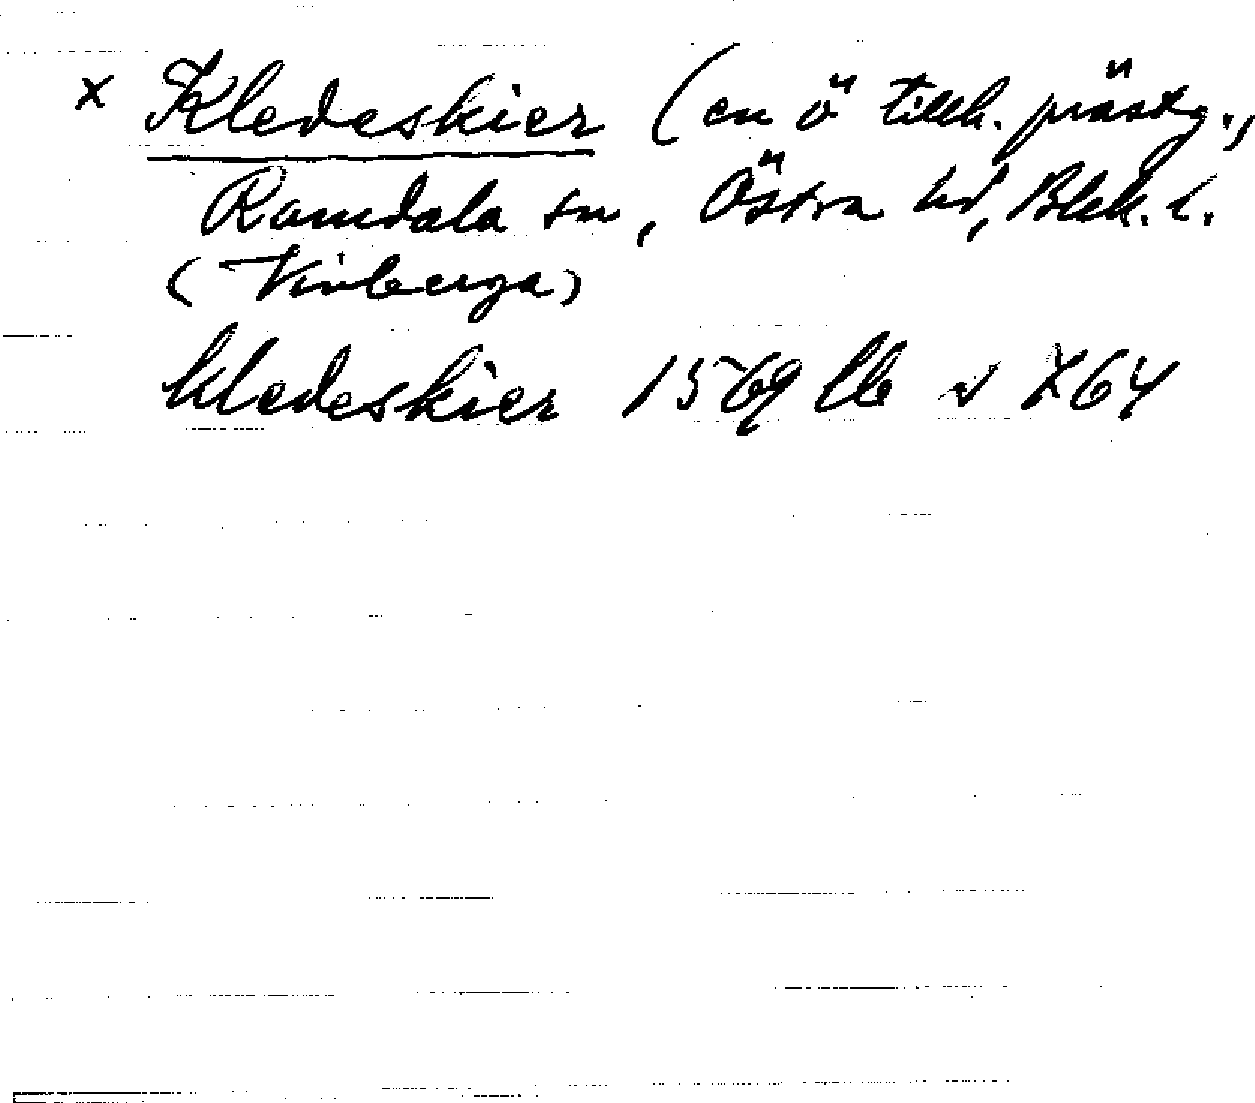 x Kledeskier (en ö tillh. prästg.,
Ramdala sn, Östra hd, Blek. l.
(Vinberga)
kledeskier 1569 lb s 264